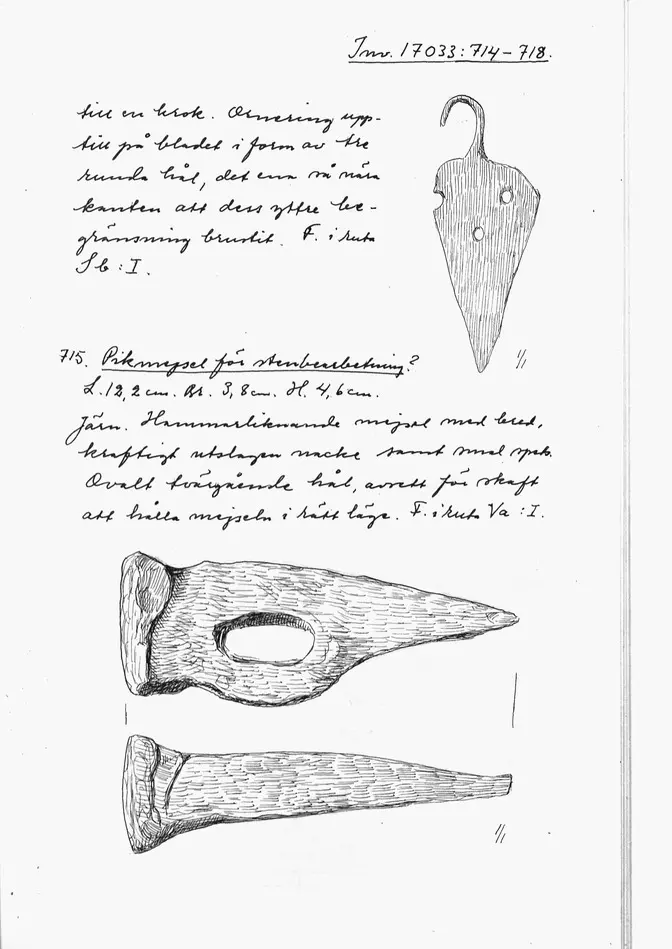 Inv. 17033:714-718.
till en krok. Ornering upp-
till på bladet i form av tre
runda hål, det ena så nära
kanten att dess yttre be-
gränsning brustit. F. i ruta
Sb:I.
1/1
715. Pikmejsel för stenbearbetning?
L. 12,2 cm. Br. 3,8 cm. H. 4,6 cm.
Järn. Hammarliknande mejsel med bred,
kraftigt utslagen nacke samt smal spets.
Ovalt tvärgående hål, avsett för skaft
att hålla mejseln i rätt läge. F. i ruta Va:I.
1/1